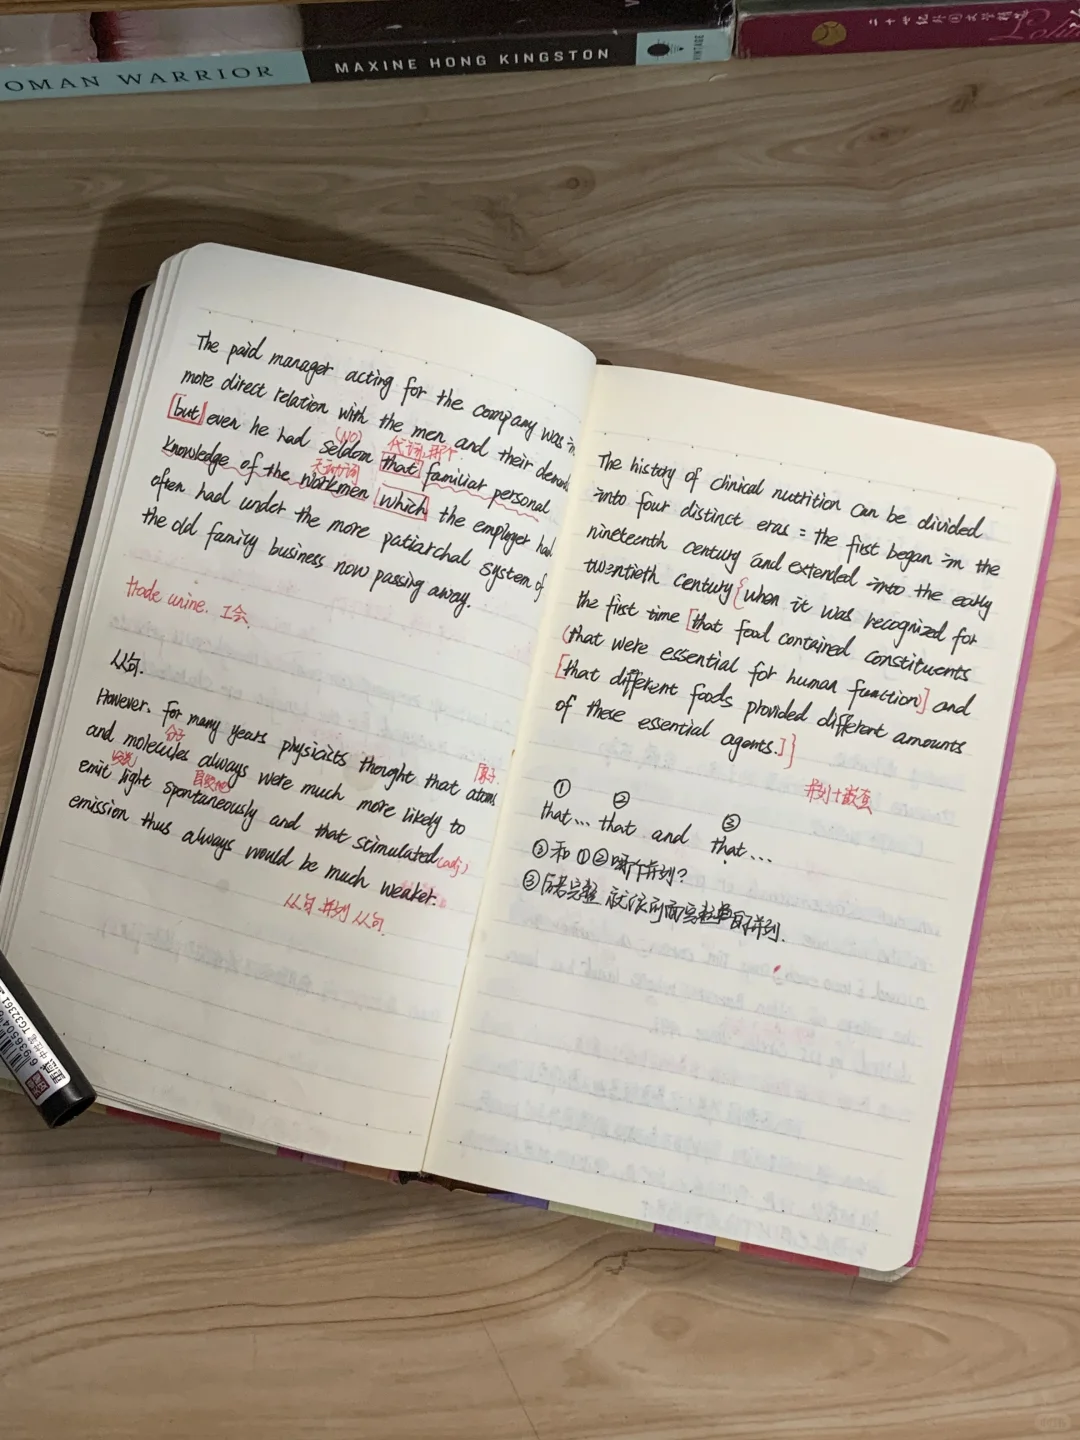 OMAN WARRIOR
MAXINE HONG KINGSTON
VINTAGE
二十世纪外国文学精选
The paid manager acting for the company was in
more direct relation with the men and their deman
but even he had seldom that familiar personal
(NO)
代词,那个
knowledge of the workmen which the employer had
无动词
often had under the more patiarchal system of
the old family business now passing away.
trade unine. 工会.
从句.
However, for many years physicists thought that atoms
分子
原子
and molecules always were much more likely to
emit light spontaneously and that stimulated (adj)
emission thus always would be much weaker.
从句 并列 从句.
The history of clinical nutrition can be divided
into four distinct eras = the first began in the
nineteenth century and extended into the early
twentieth century {when it was recognized for
the first time [that food contained constituents
(that were essential for human function)] and
[that different foods provided different amounts
of these essential agents.]}
① ② ③
that... that and that...
③和①②哪个并列?
中性笔 TG32361